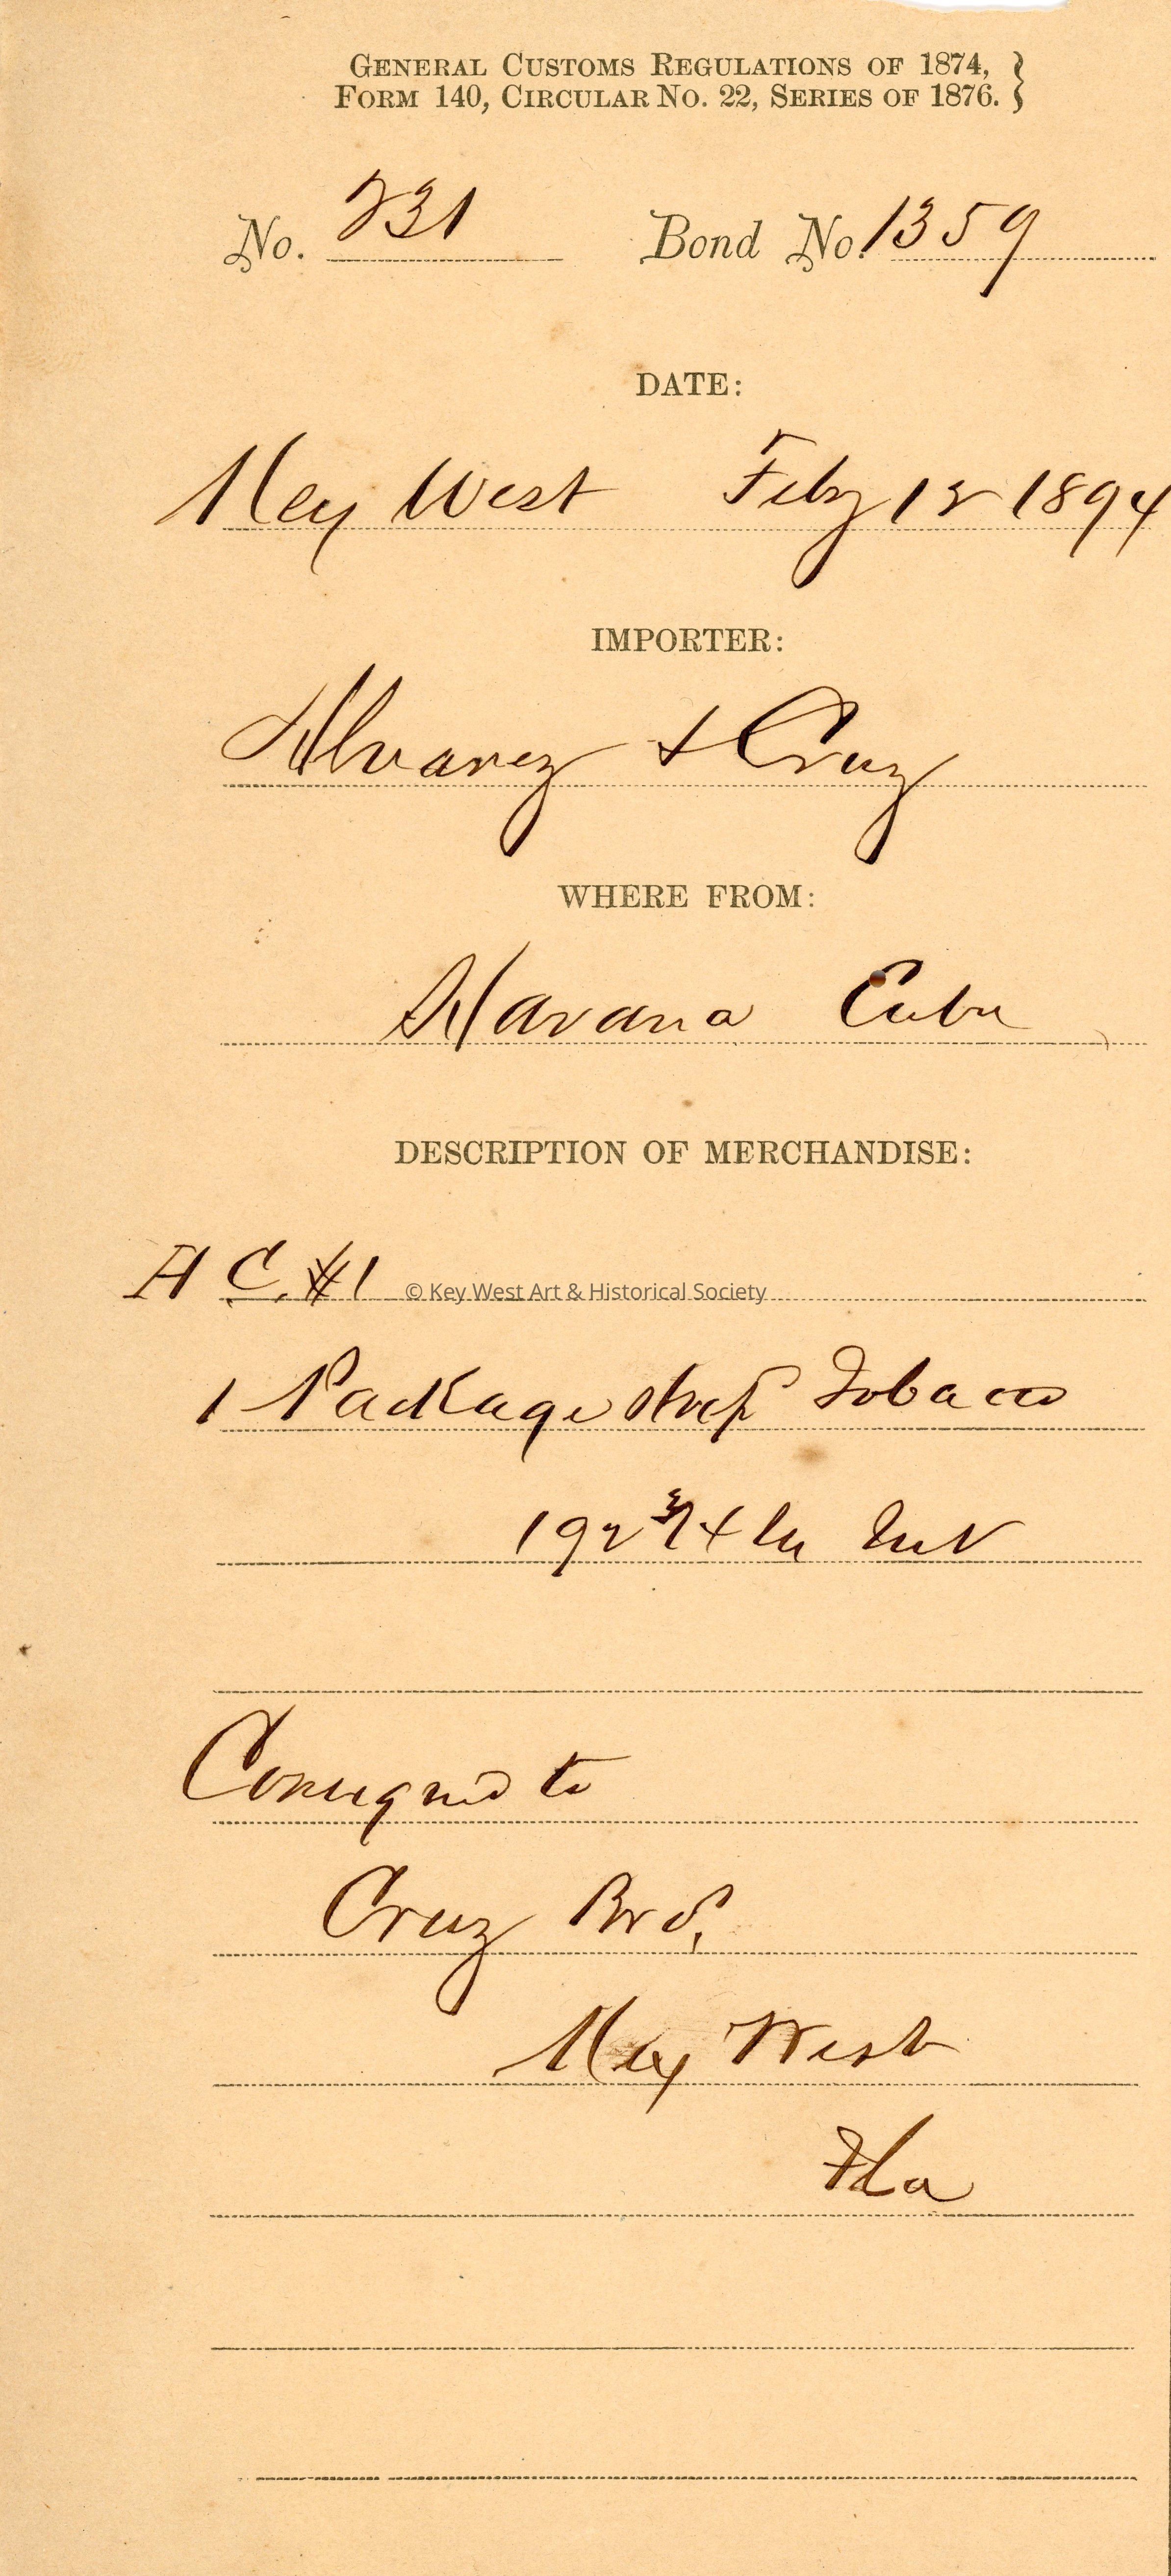 GENERAL CUSTOMS REGULATIONS OF 1874,
FORM 140, CIRCULAR No. 22, SERIES OF 1876. }
No. 231 Bond No. 1359
DATE:
Key West Feby 12 1894
IMPORTER:
Alvarez & Cruz
WHERE FROM:
Havana Cuba
DESCRIPTION OF MERCHANDISE:
A C. #1
© Key West Art & Historical Society
1 Package Tobacco
192
Consigned to
Cruz Bro.
Key West
Fla